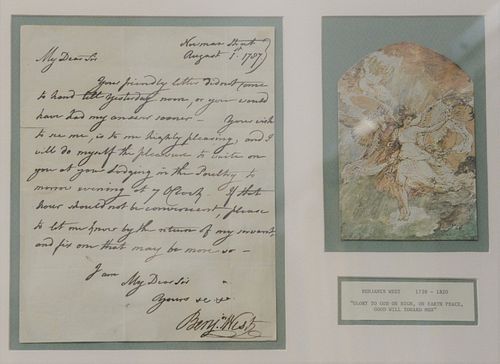 Newman Street
August 1st 1787
My Dear Sir
Your friendly letter did not come
to hand till yesterday noon, or you would
have had my answer sooner — Your wish
to see me, is to me highly pleasing, and I
will do myself the pleasure to waite on
you at your Lodging in the to
morrow evening at 7 OClock. If that
hour should not be convenient, please
to let me know by the return of my servant,
and fix one that may be more so —
I am
My Dear Sir
Yours &c &c
Benjn. West
BENJAMIN WEST 1738 - 1820
"GLORY TO GOD ON HIGH, ON EARTH PEACE,
GOOD WILL TOWARD MEN"